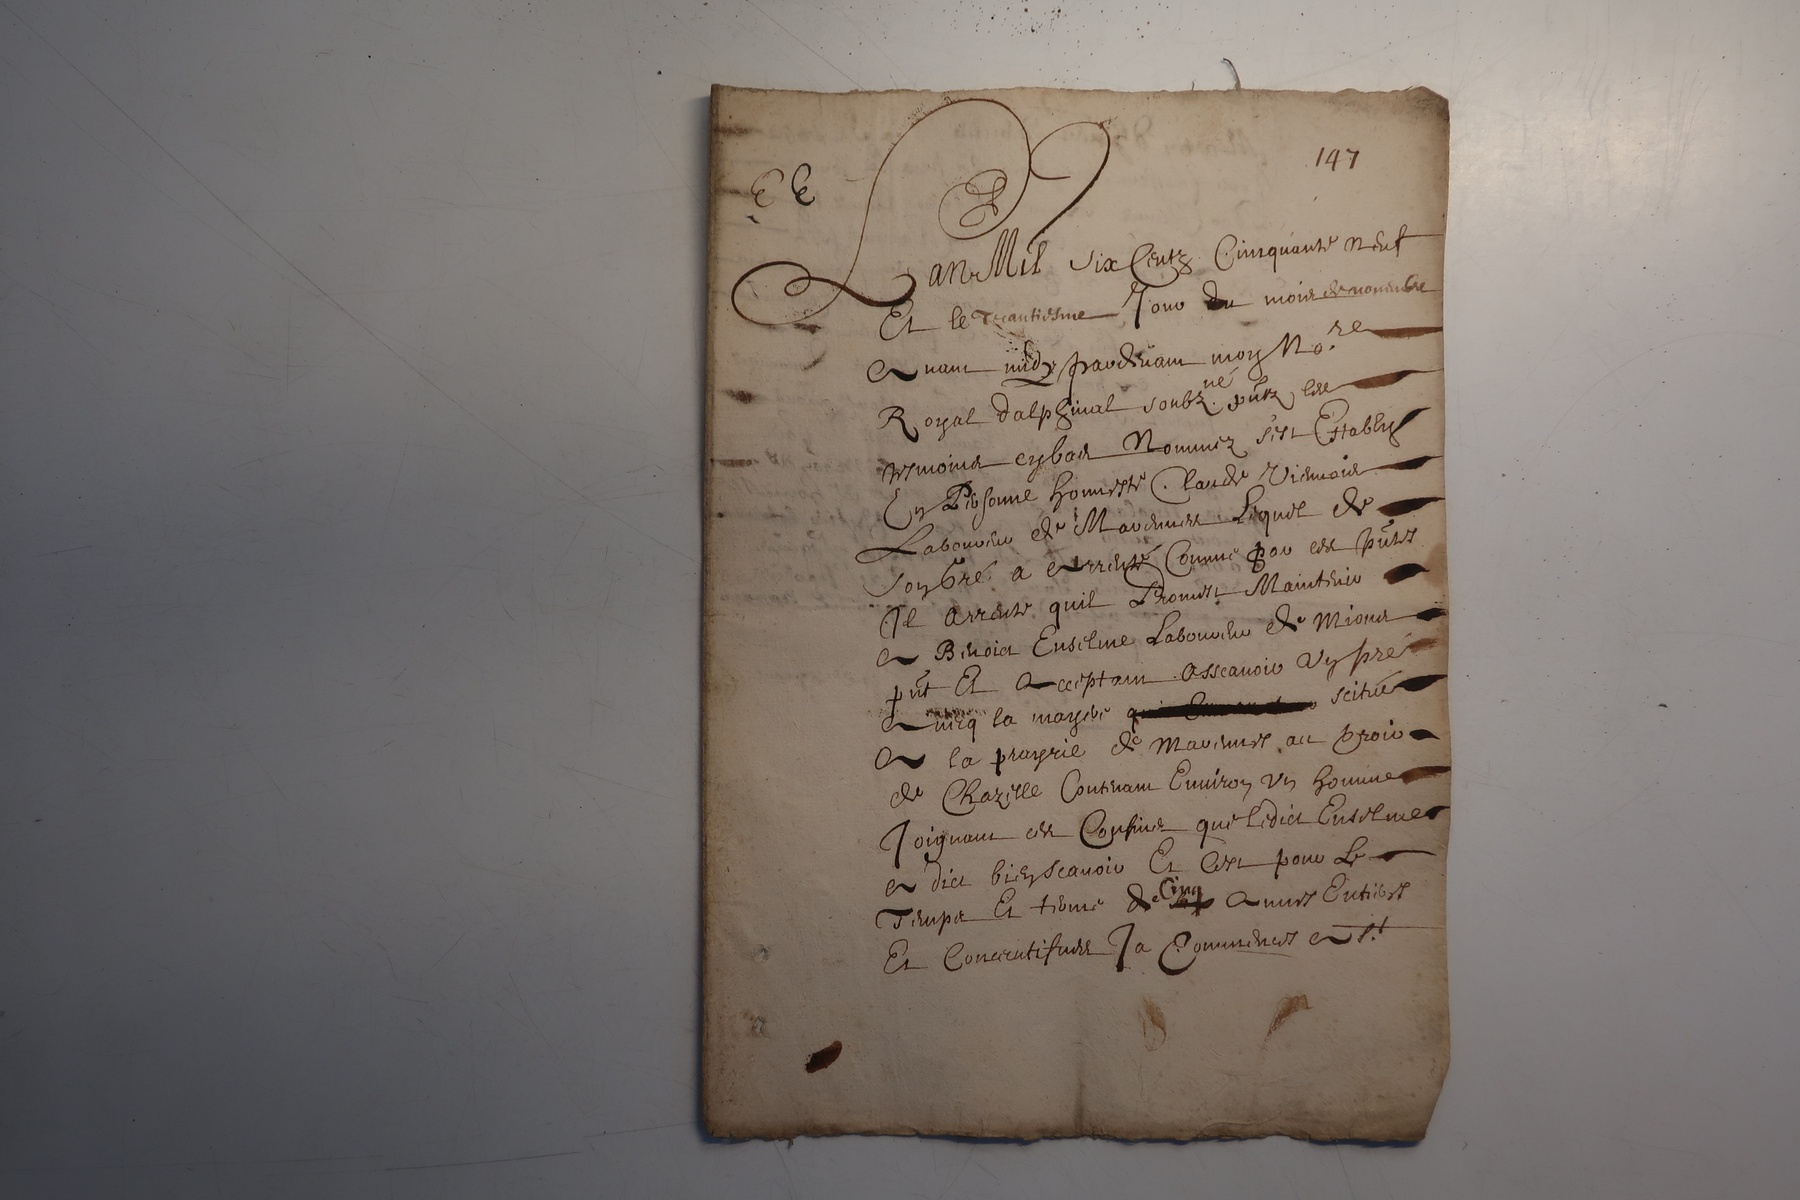 EE
147
Lan Mil six Centz Cinquante neuf
Et le trantiesme Jour du mois de novembre
Avant midy pardevant moy No.re
Royal dalphinal soubz.né pñtz les
tesmoins cybas Nommez sest Establys
En Personne honneste Claude
Laboureur de Marennes Lequel de
son gré a arrenté Comme par ces pñtes
Il arrente quil Promet Maintenir
A Benoict Enselme Laboureur de Mions
pñt Et Acceptant assavoir Un pré
Avecq la scitué
A la prayrie de Marennes au
de Chazelle Contenant Environ Un homme
Joignant ces Confins que ledict Enselme
a dict bien scavoir Et Cest pour Le
Temps Et terme de Cinq Annes Entieres
Et Consecutifves Ja Commences A St